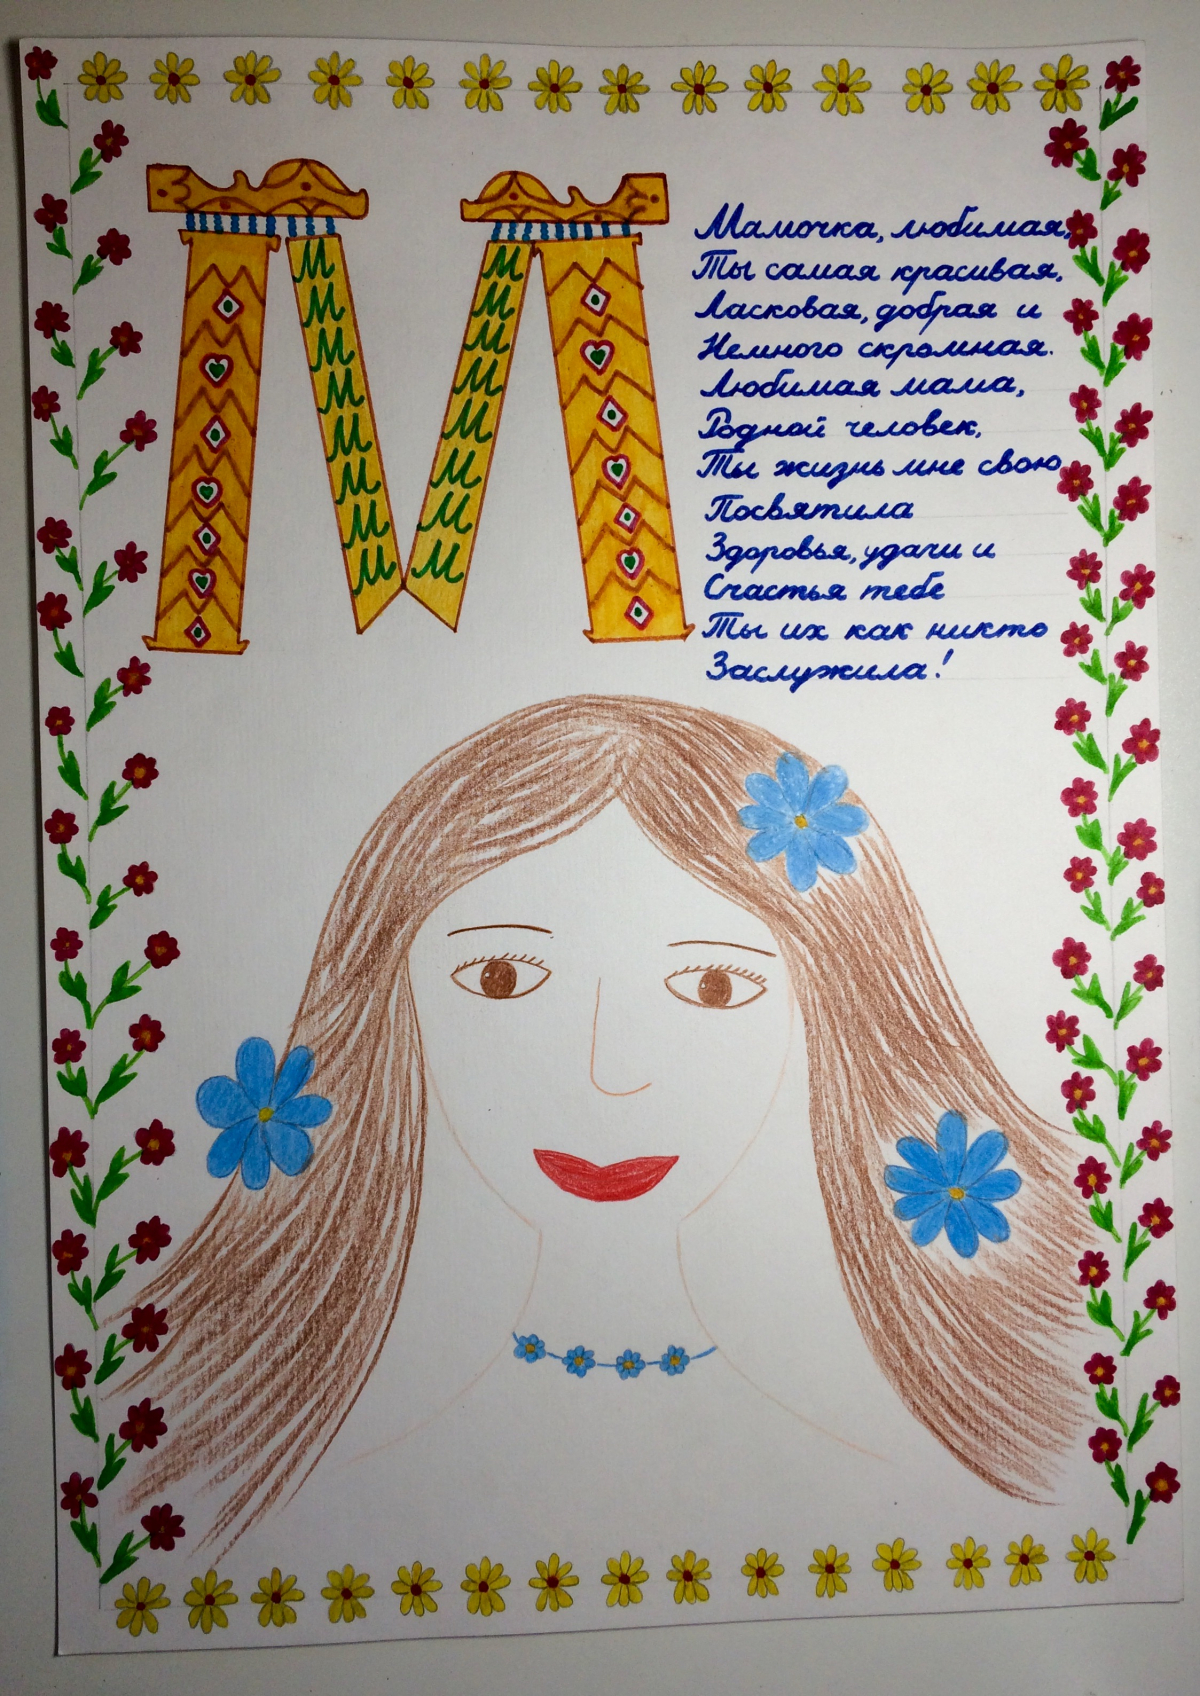 М
М М
М М
М М
М М
М М
М М
М М
М М
Мамочка, любимая,
Ты самая красивая,
Ласковая, добрая и
Немного скромная.
Любимая мама,
Родной человек,
Ты жизнь мне свою
Посвятила
Здоровья, удачи и
Счастья тебе
Ты их как никто
Заслужила!